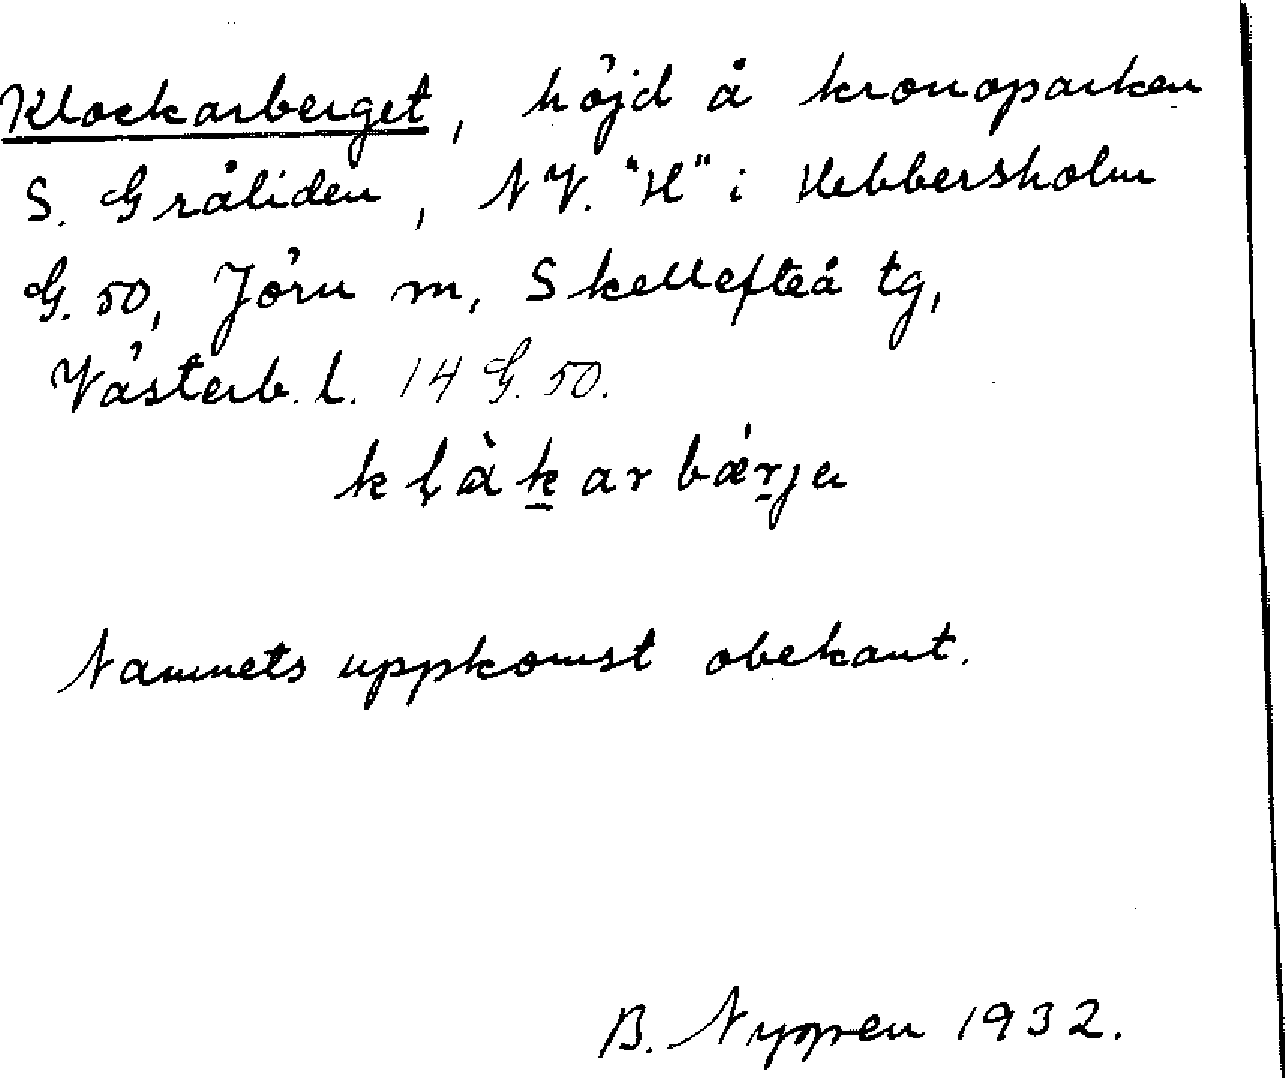 Klockarberget, höjd å kronoparken
S. Gråliden, NV. "H" i Hebbersholm
G. 50, Jörn m, Skellefteå tg,
Västerb. l. 14 G. 50.
kḷàḵarbǽṟja
Namnets uppkomst obekant.
B. Nyppen 1932.